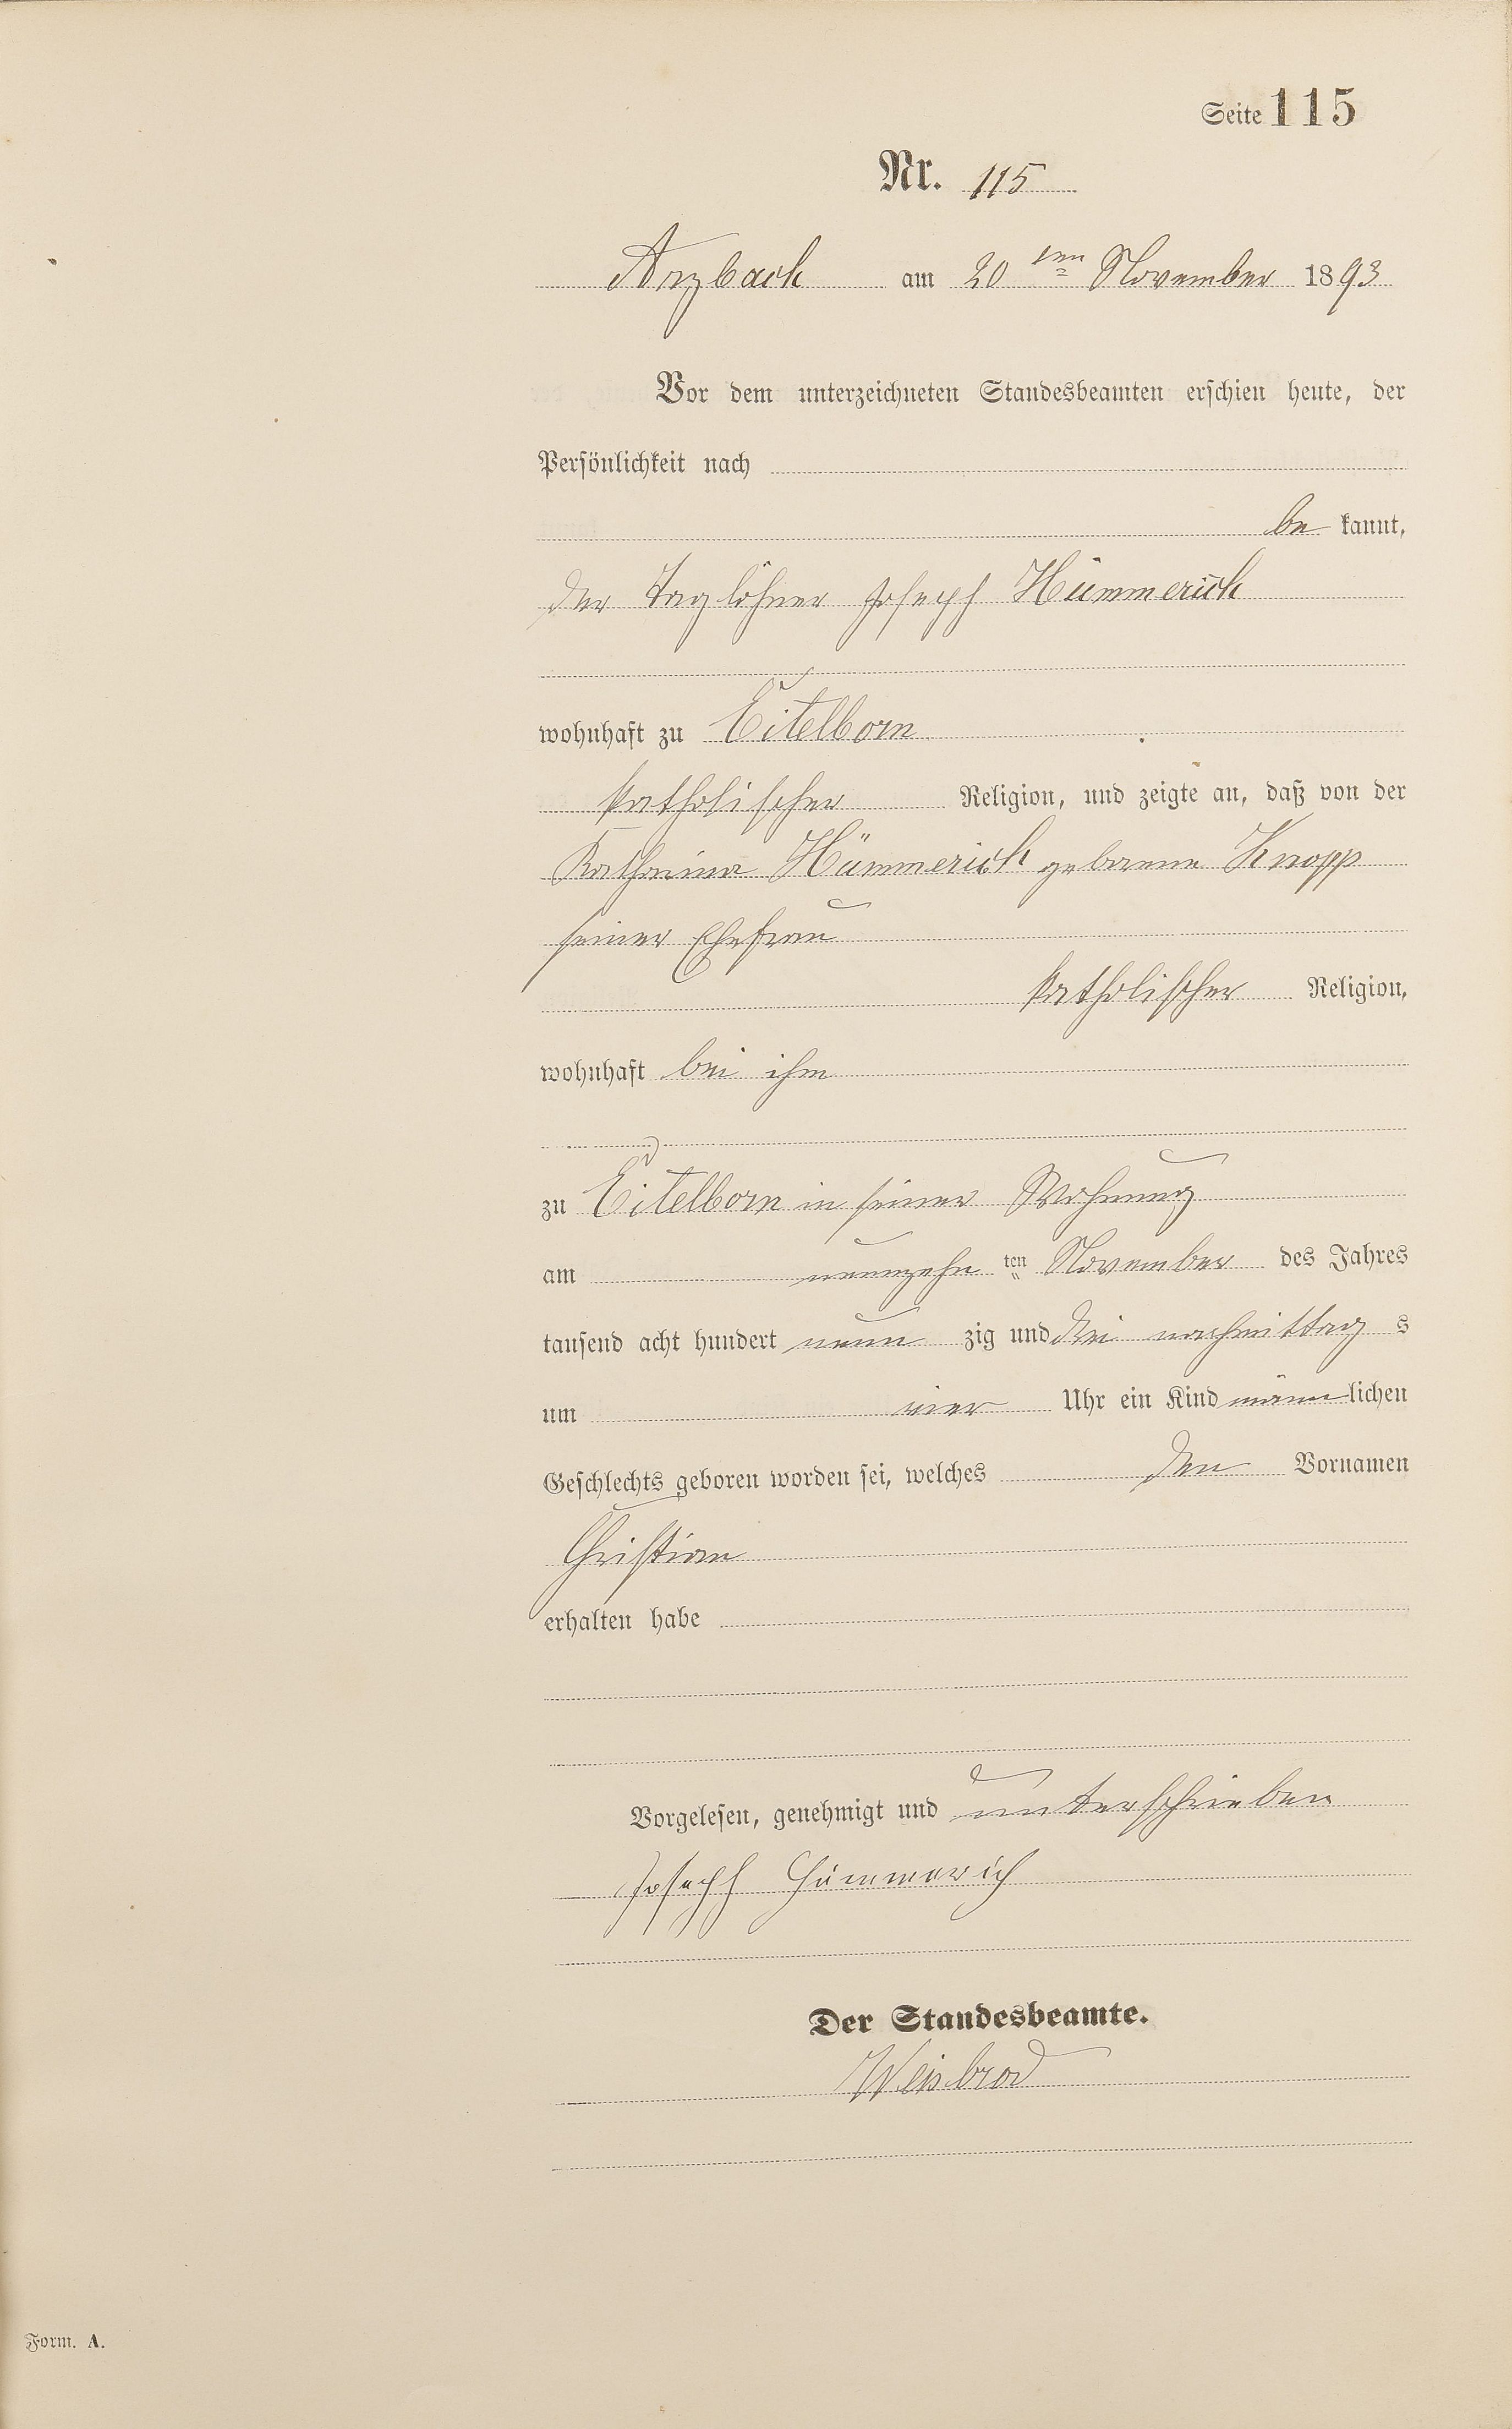 Seite 115
Nr. 115
Arzbach am 20ten November 1893
Vor dem unterzeichneten Standesbeamten erschien heute, der
Persönlichkeit nach
be kannt,
der Taglöhner Joseph Hümmerich
wohnhaft zu Eitelborn
katholischer Religion, und zeigte an, daß von der
Katharina Hümmerich geborene Knopp
seiner Ehefrau
katholischer Religion,
wohnhaft bei ihm
zu Eitelborn in seiner Wohnung
am neunzehn ten November des Jahres
tausend acht hundert neun zig und drei nachmittag s
um vier Uhr ein Kind männlichen
Geschlechts geboren worden sei, welches den Vornamen
Christian
erhalten habe
Vorgelesen, genehmigt und unterschrieben
Joseph Hümmerich
Der Standesbeamte.
Weisbrod
Form. A.